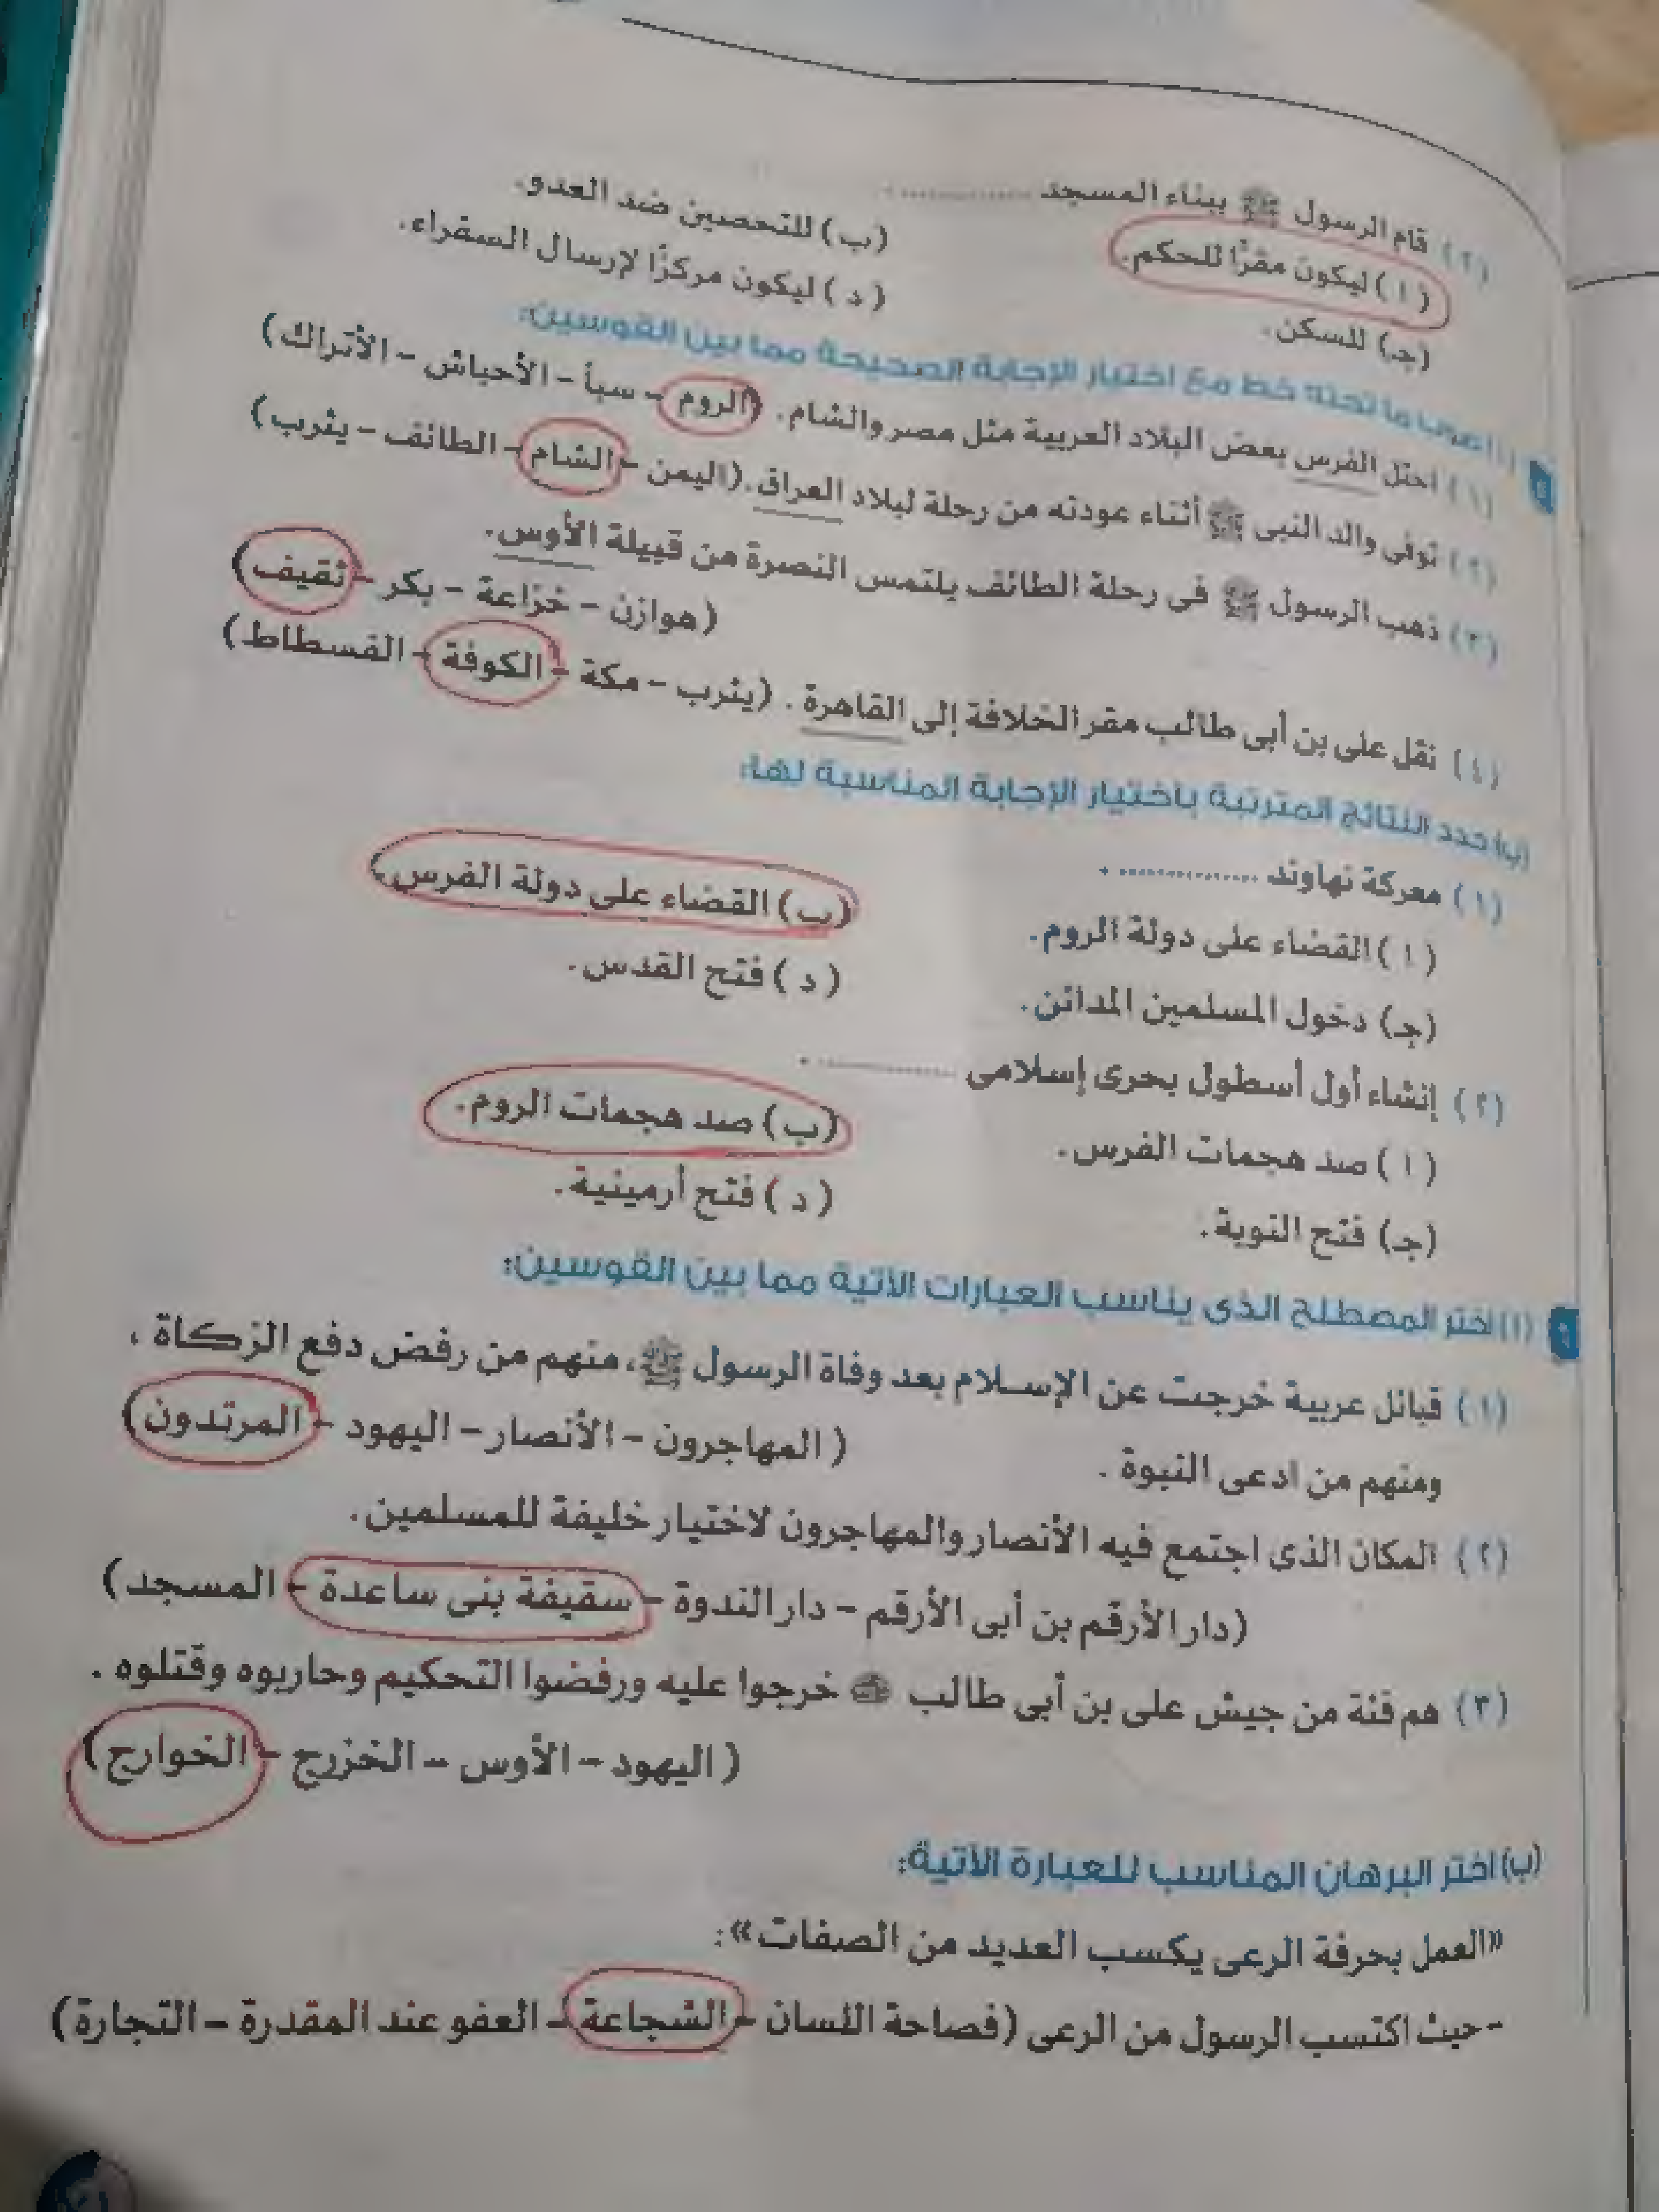 (٢) قام الرسول ﷺ ببناء المسجد ..............
(ا) ليكون مقرًا للحكم. (ب) للتحصين ضد العدو.
(جـ) للسكن. (د) ليكون مركزًا لإرسال السفراء.
(ا) صوب ما تحته خط مع اختيار الإجابة الصحيحة مما بين القوسين:
(١) احتل الفرس بعض البلاد العربية مثل مصر والشام. (الروم – سبأ – الأحباش – الأتراك)
(٢) توفى والد النبى ﷺ أثناء عودته من رحلة لبلاد العراق. (اليمن – الشام – الطائف – يثرب)
(٣) ذهب الرسول ﷺ فى رحلة الطائف يلتمس النصرة من قبيلة الأوس.
(هوازن – خزاعة – بكر – ثقيف)
(٤) نقل على بن أبى طالب مقر الخلافة إلى القاهرة. (يثرب – مكة – الكوفة – الفسطاط)
(ب) حدد النتائج المترتبة باختيار الإجابة المناسبة لها:
(١) معركة نهاوند ..............
(ا) القضاء على دولة الروم. (ب) القضاء على دولة الفرس.
(جـ) دخول المسلمين المدائن. (د) فتح القدس.
(٢) إنشاء أول أسطول بحرى إسلامى ..............
(ا) صد هجمات الفرس. (ب) صد هجمات الروم.
(جـ) فتح النوبة. (د) فتح أرمينية.
(ا) اختر المصطلح الذى يناسب العبارات الآتية مما بين القوسين:
(١) قبائل عربية خرجت عن الإسلام بعد وفاة الرسول ﷺ، منهم من رفض دفع الزكاة،
ومنهم من ادعى النبوة. (المهاجرون – الأنصار – اليهود – المرتدون)
(٢) المكان الذى اجتمع فيه الأنصار والمهاجرون لاختيار خليفة للمسلمين.
(دار الأرقم بن أبى الأرقم – دار الندوة – سقيفة بنى ساعدة – المسجد)
(٣) هم فئة من جيش على بن أبى طالب خرجوا عليه ورفضوا التحكيم وحاربوه وقتلوه.
(اليهود – الأوس – الخزرج – الخوارج)
(ب) اختر البرهان المناسب للعبارة الآتية:
«العمل بحرفة الرعى يكسب العديد من الصفات»:
- حيث اكتسب الرسول من الرعى (فصاحة اللسان – الشجاعة – العفو عند المقدرة – التجارة)